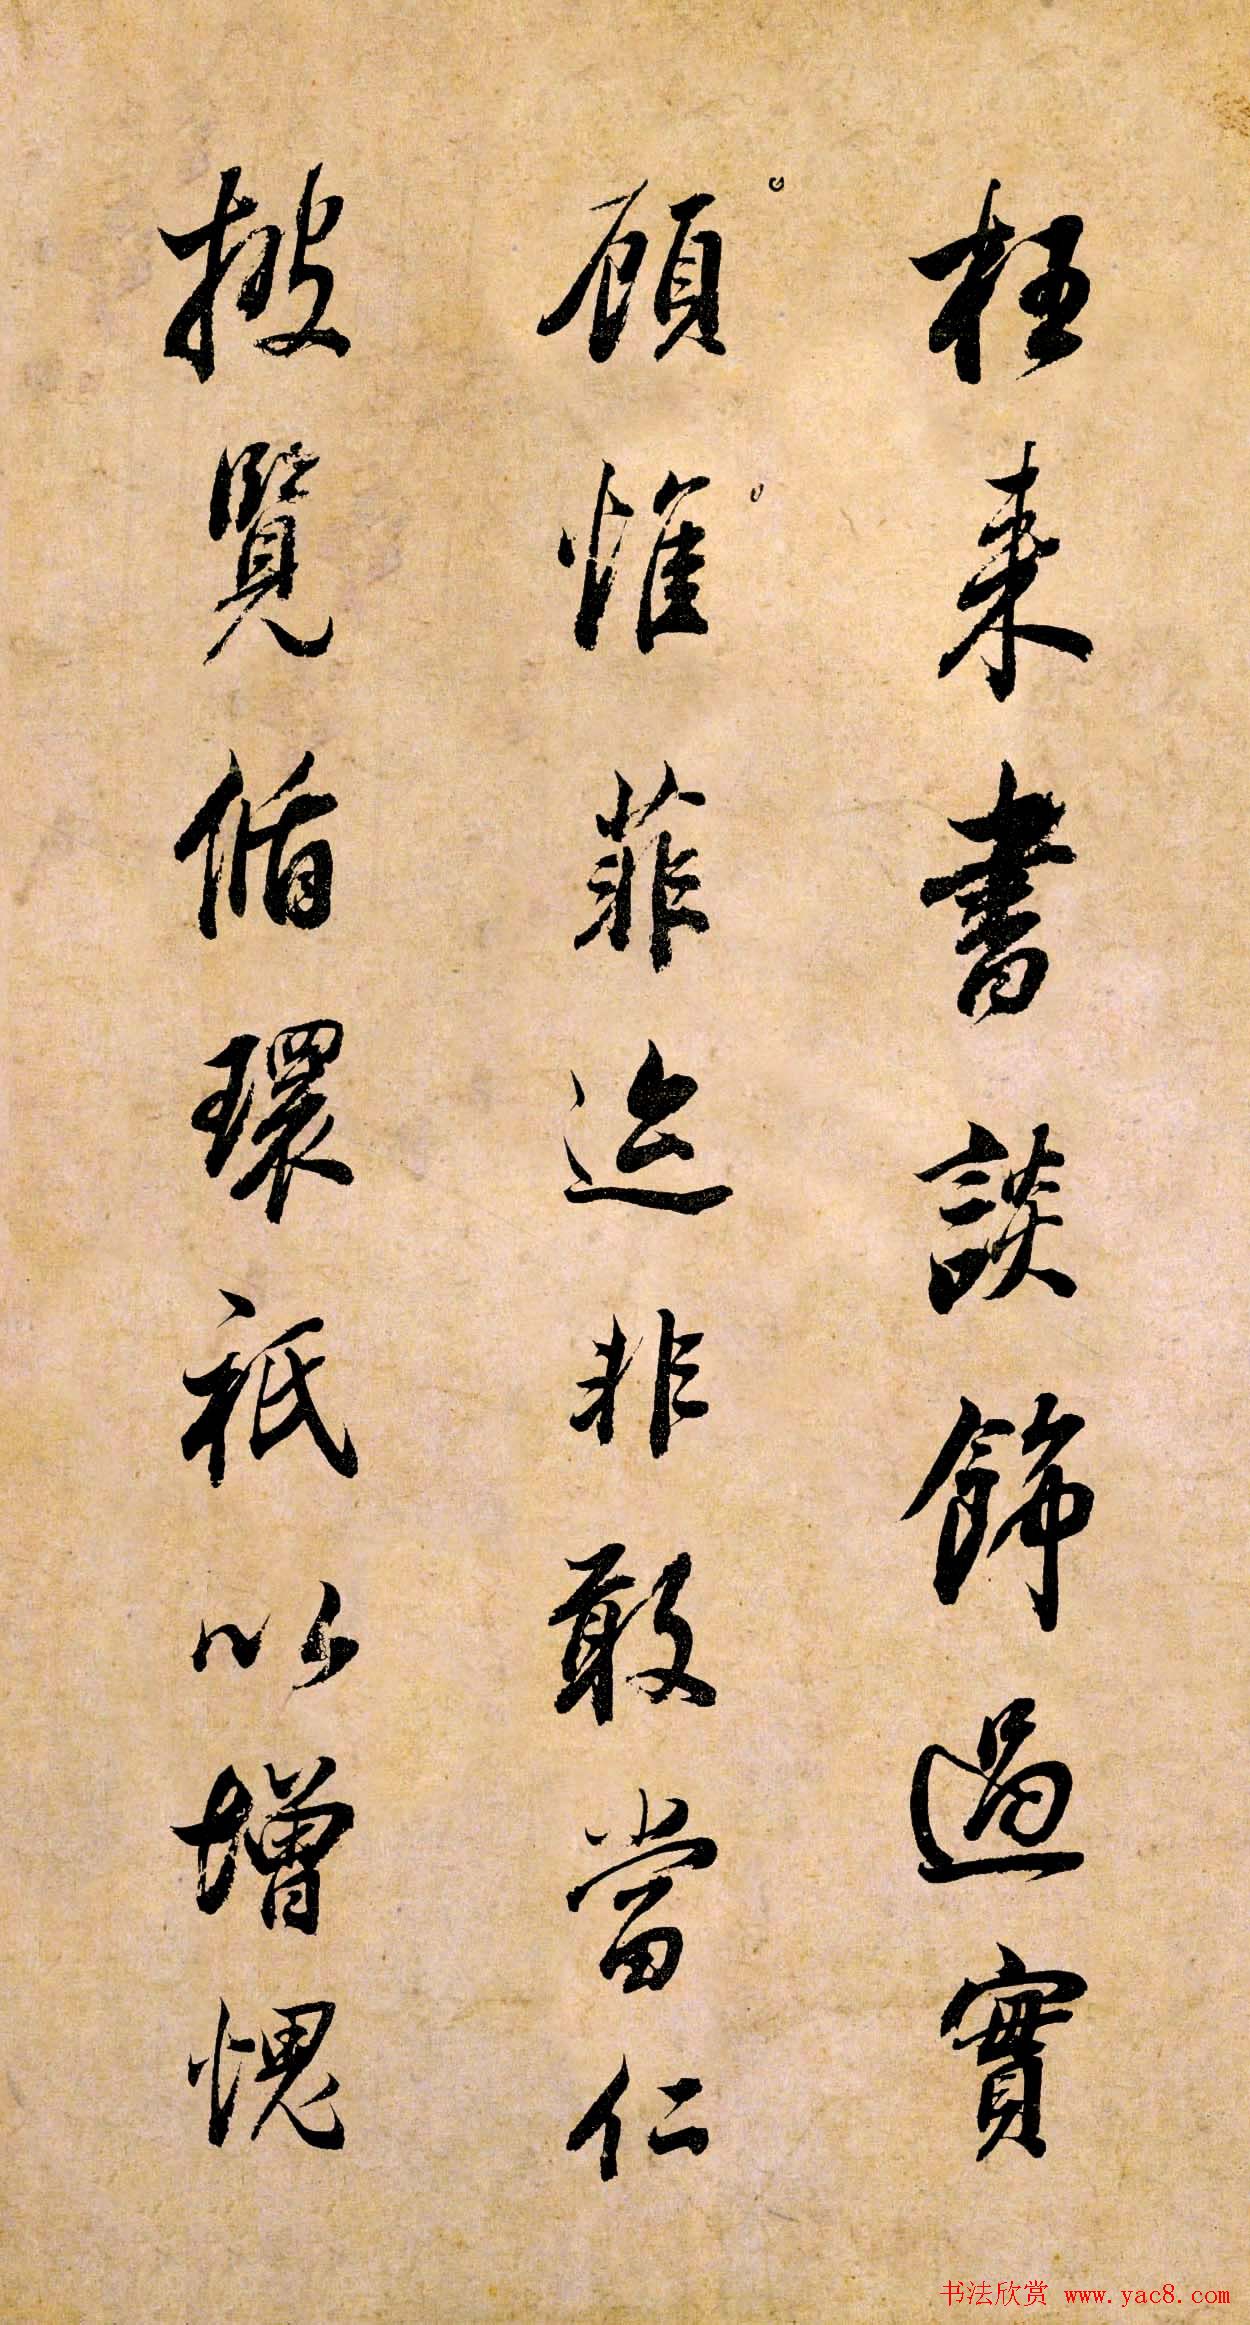 枉来書談飾過實
顧惟菲迹非敢當仁
披覽循環祇以增愧
书法欣赏 www.yac8.com